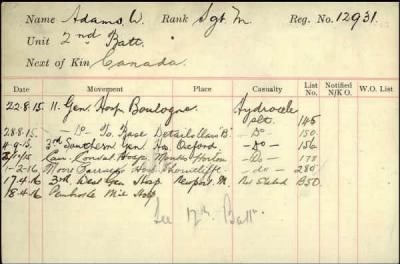 Name Adams, W. Rank Sgt. M. Reg. No. 12931.
Unit 2nd Batt.
Next of Kin Canada.
Date Movement Place Casualty List No. Notified N/K O. W.O. List
22-8-15. 11. Gen. Hosp Boulogne Hydrocele
slt. 145
28-8-15. Do To Base Details "B". - Do - 150
4-9-15. 3rd Southern Gen Hos Oxford. - do - 156
Hosp. Monks Horton - Do - 178
1-2-16 Moore Barracks Hosp Shorncliffe - do - 280
17.4.16 3rd West Gen Hosp Newport. M. Not Stated B50
18.4.16 Pembroke Mil Hosp
See 17th Batt.